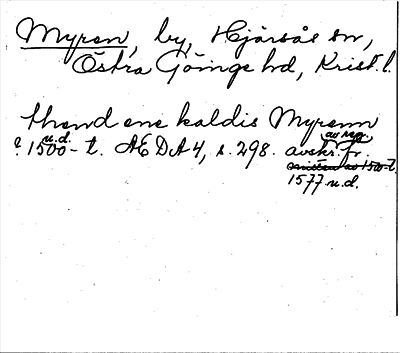 Myren, by, Hjärsås sn,
Östra Göinge hd, Krist. l.
thend ene kaldis Myrenn
u.d. av reg.
? 1500-t. ÆDA 4, s. 298. avskr. fr.
mitten av 1500-t.
1577 u.d.